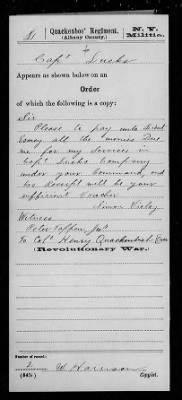 Quackenbos' Regiment.
(Albany County.)
N. Y.
Militia.
Capt Lusks
Appears as shown below on an
Order
of which the following is a copy:
Sir
Please to pay unto
all the monies Due
me for my Services in
Capt Lusks Company
under your Command, and
his Receipt will be your
sufficient Voucher
Witness
Peter
To Col Henry Quackenbush
(Revolutionary War.)
Number of record:
2
W Harrison
(545)
Copyist.